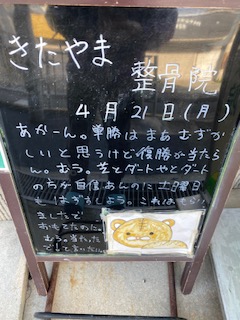 きたやま
整骨院
4月21日(月)
あかーん。単勝はまあむずか
しいと思うけど復勝が当たら
ん。むう。芝とダートやとダート
のちが自信あんのに土曜日
も はずし う。これは
ましたで
おもてたのに。
むう。当たった
でと言いたい